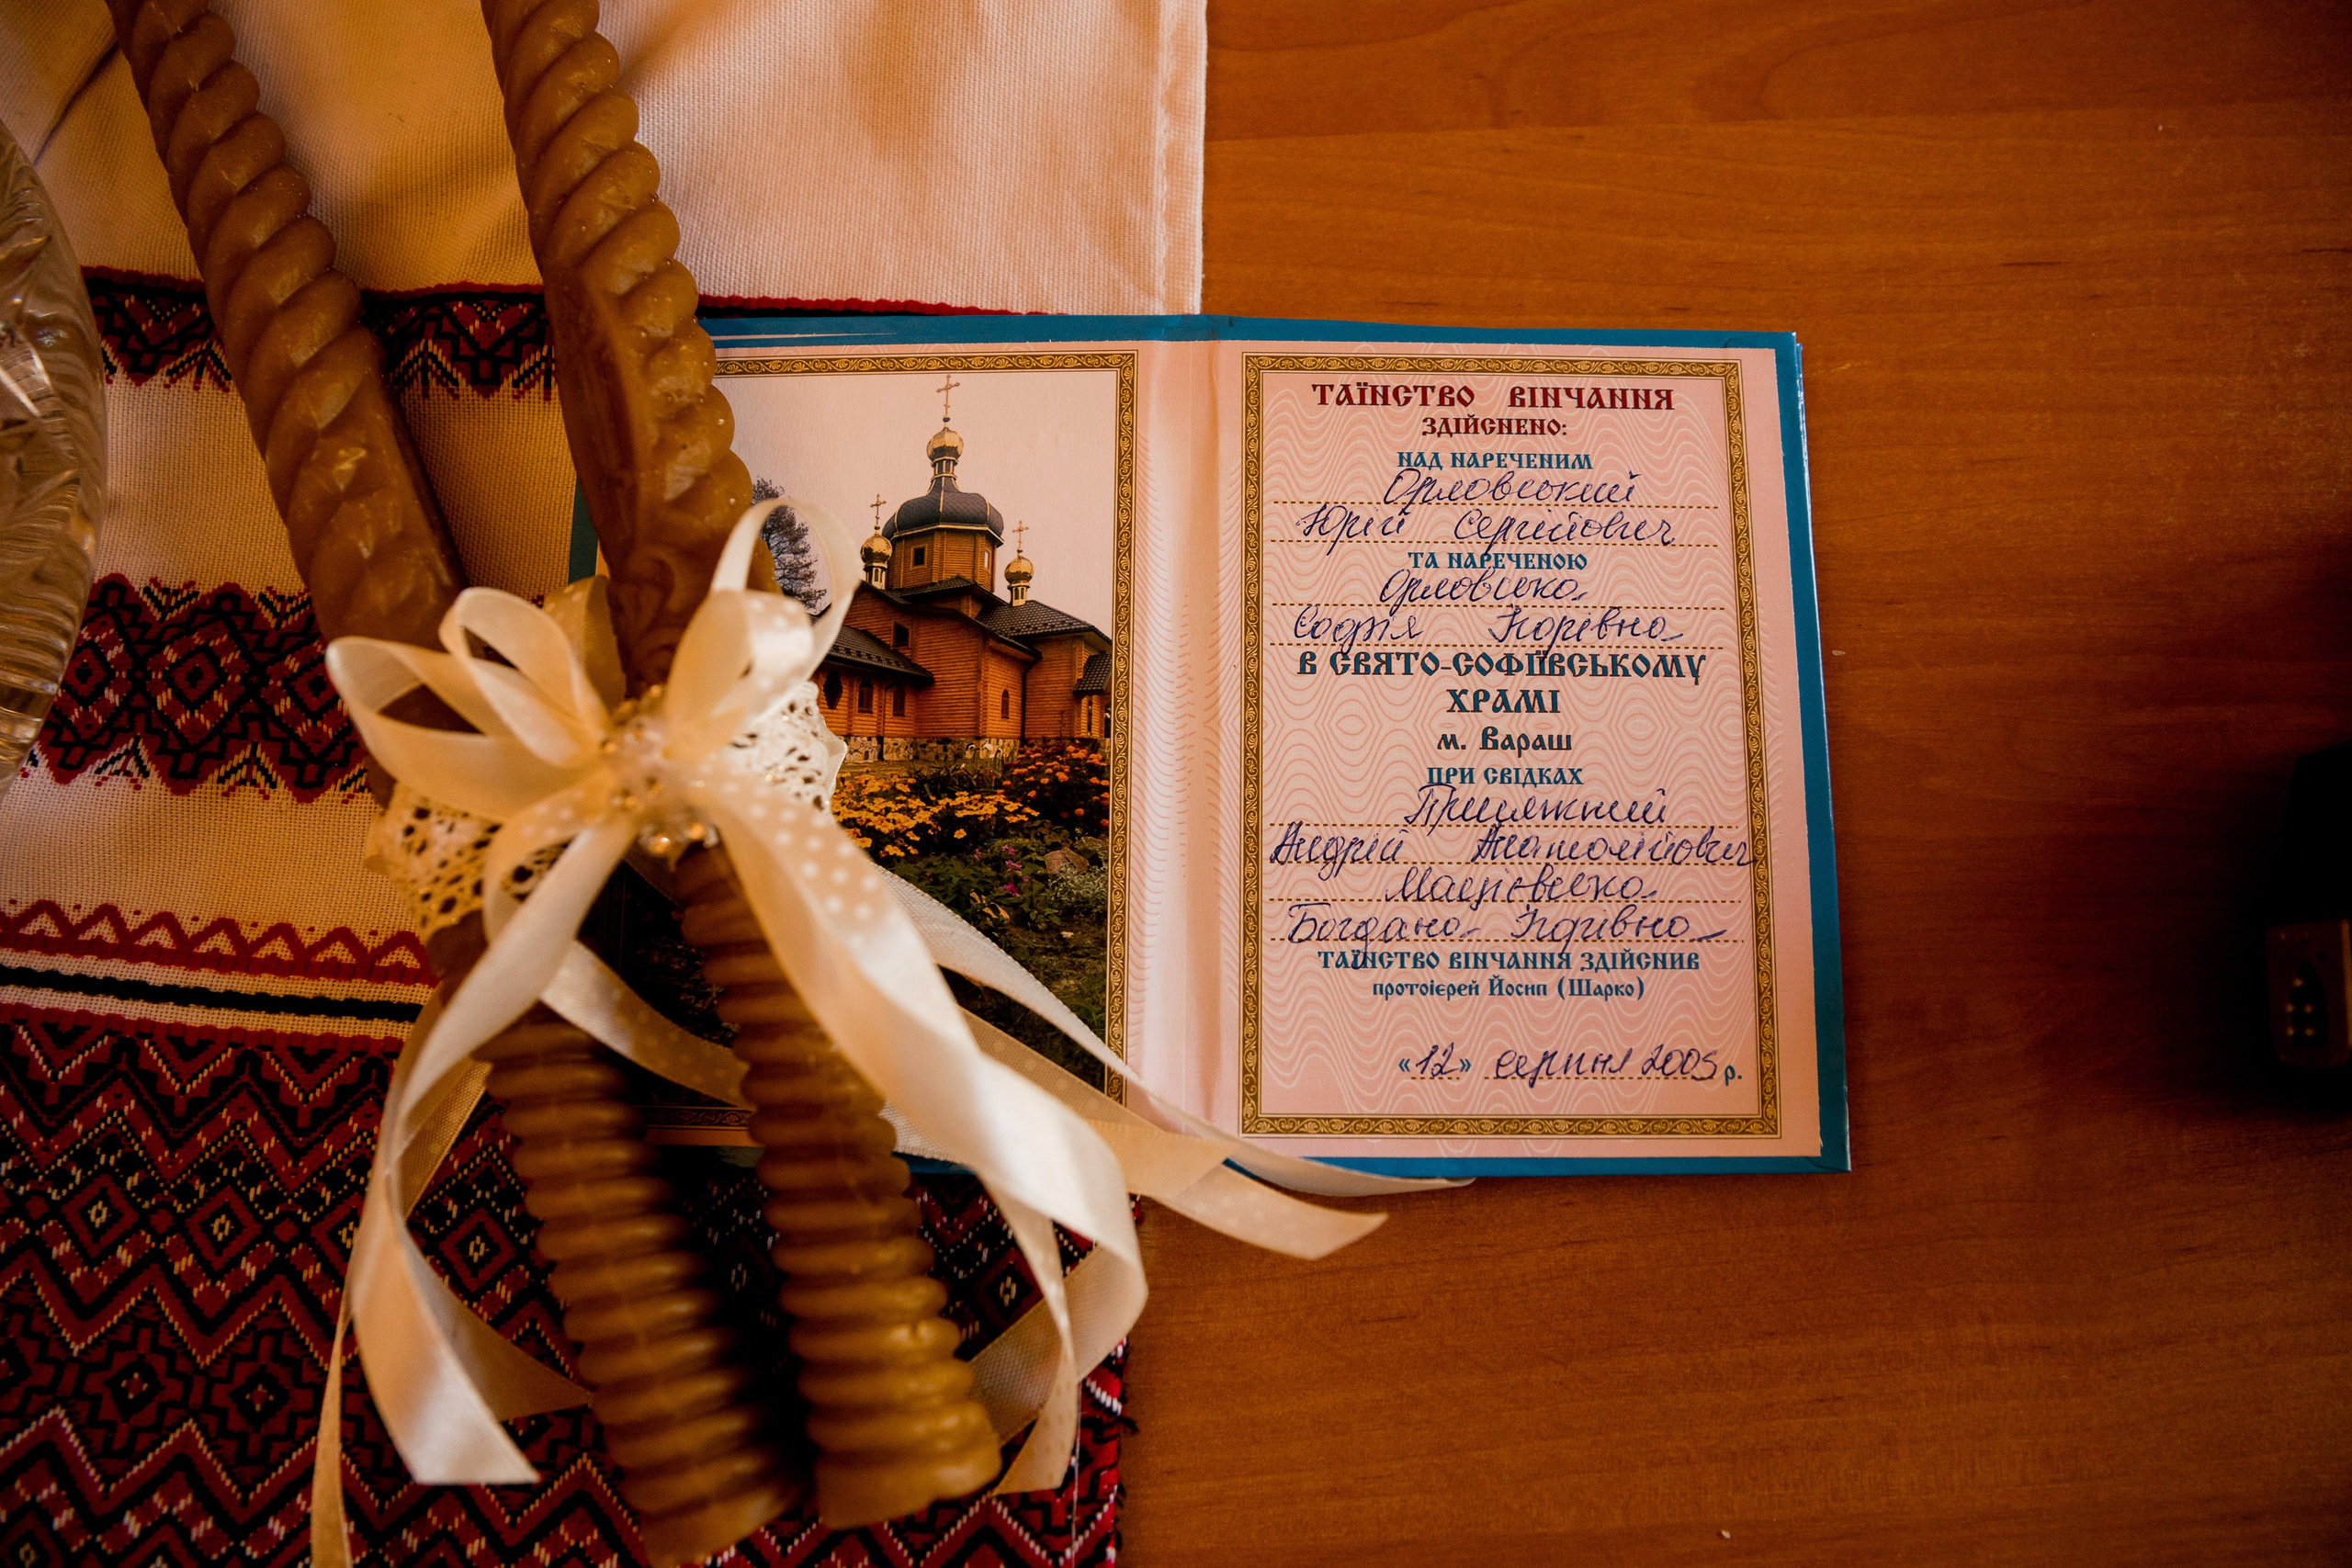 ТАЇНСТВО ВІНЧАННЯ
ЗДІЙСНЕНО:
НАД НАРЕЧЕНИМ
Орловський
Юрій Сергійович
ТА НАРЕЧЕНОЮ
Орловська
Софія Ігорівна
В СВЯТО-СОФІЇВСЬКОМУ
ХРАМІ
м. Вараш
ПРИ СВІДКАХ
Присяжний
Андрій Анатолійович
Мацієвська
Богдана Ігорівна
ТАЇНСТВО ВІНЧАННЯ ЗДІЙСНИВ
протоієрей Йосип (Шарко)
«12» серпня 2005 р.